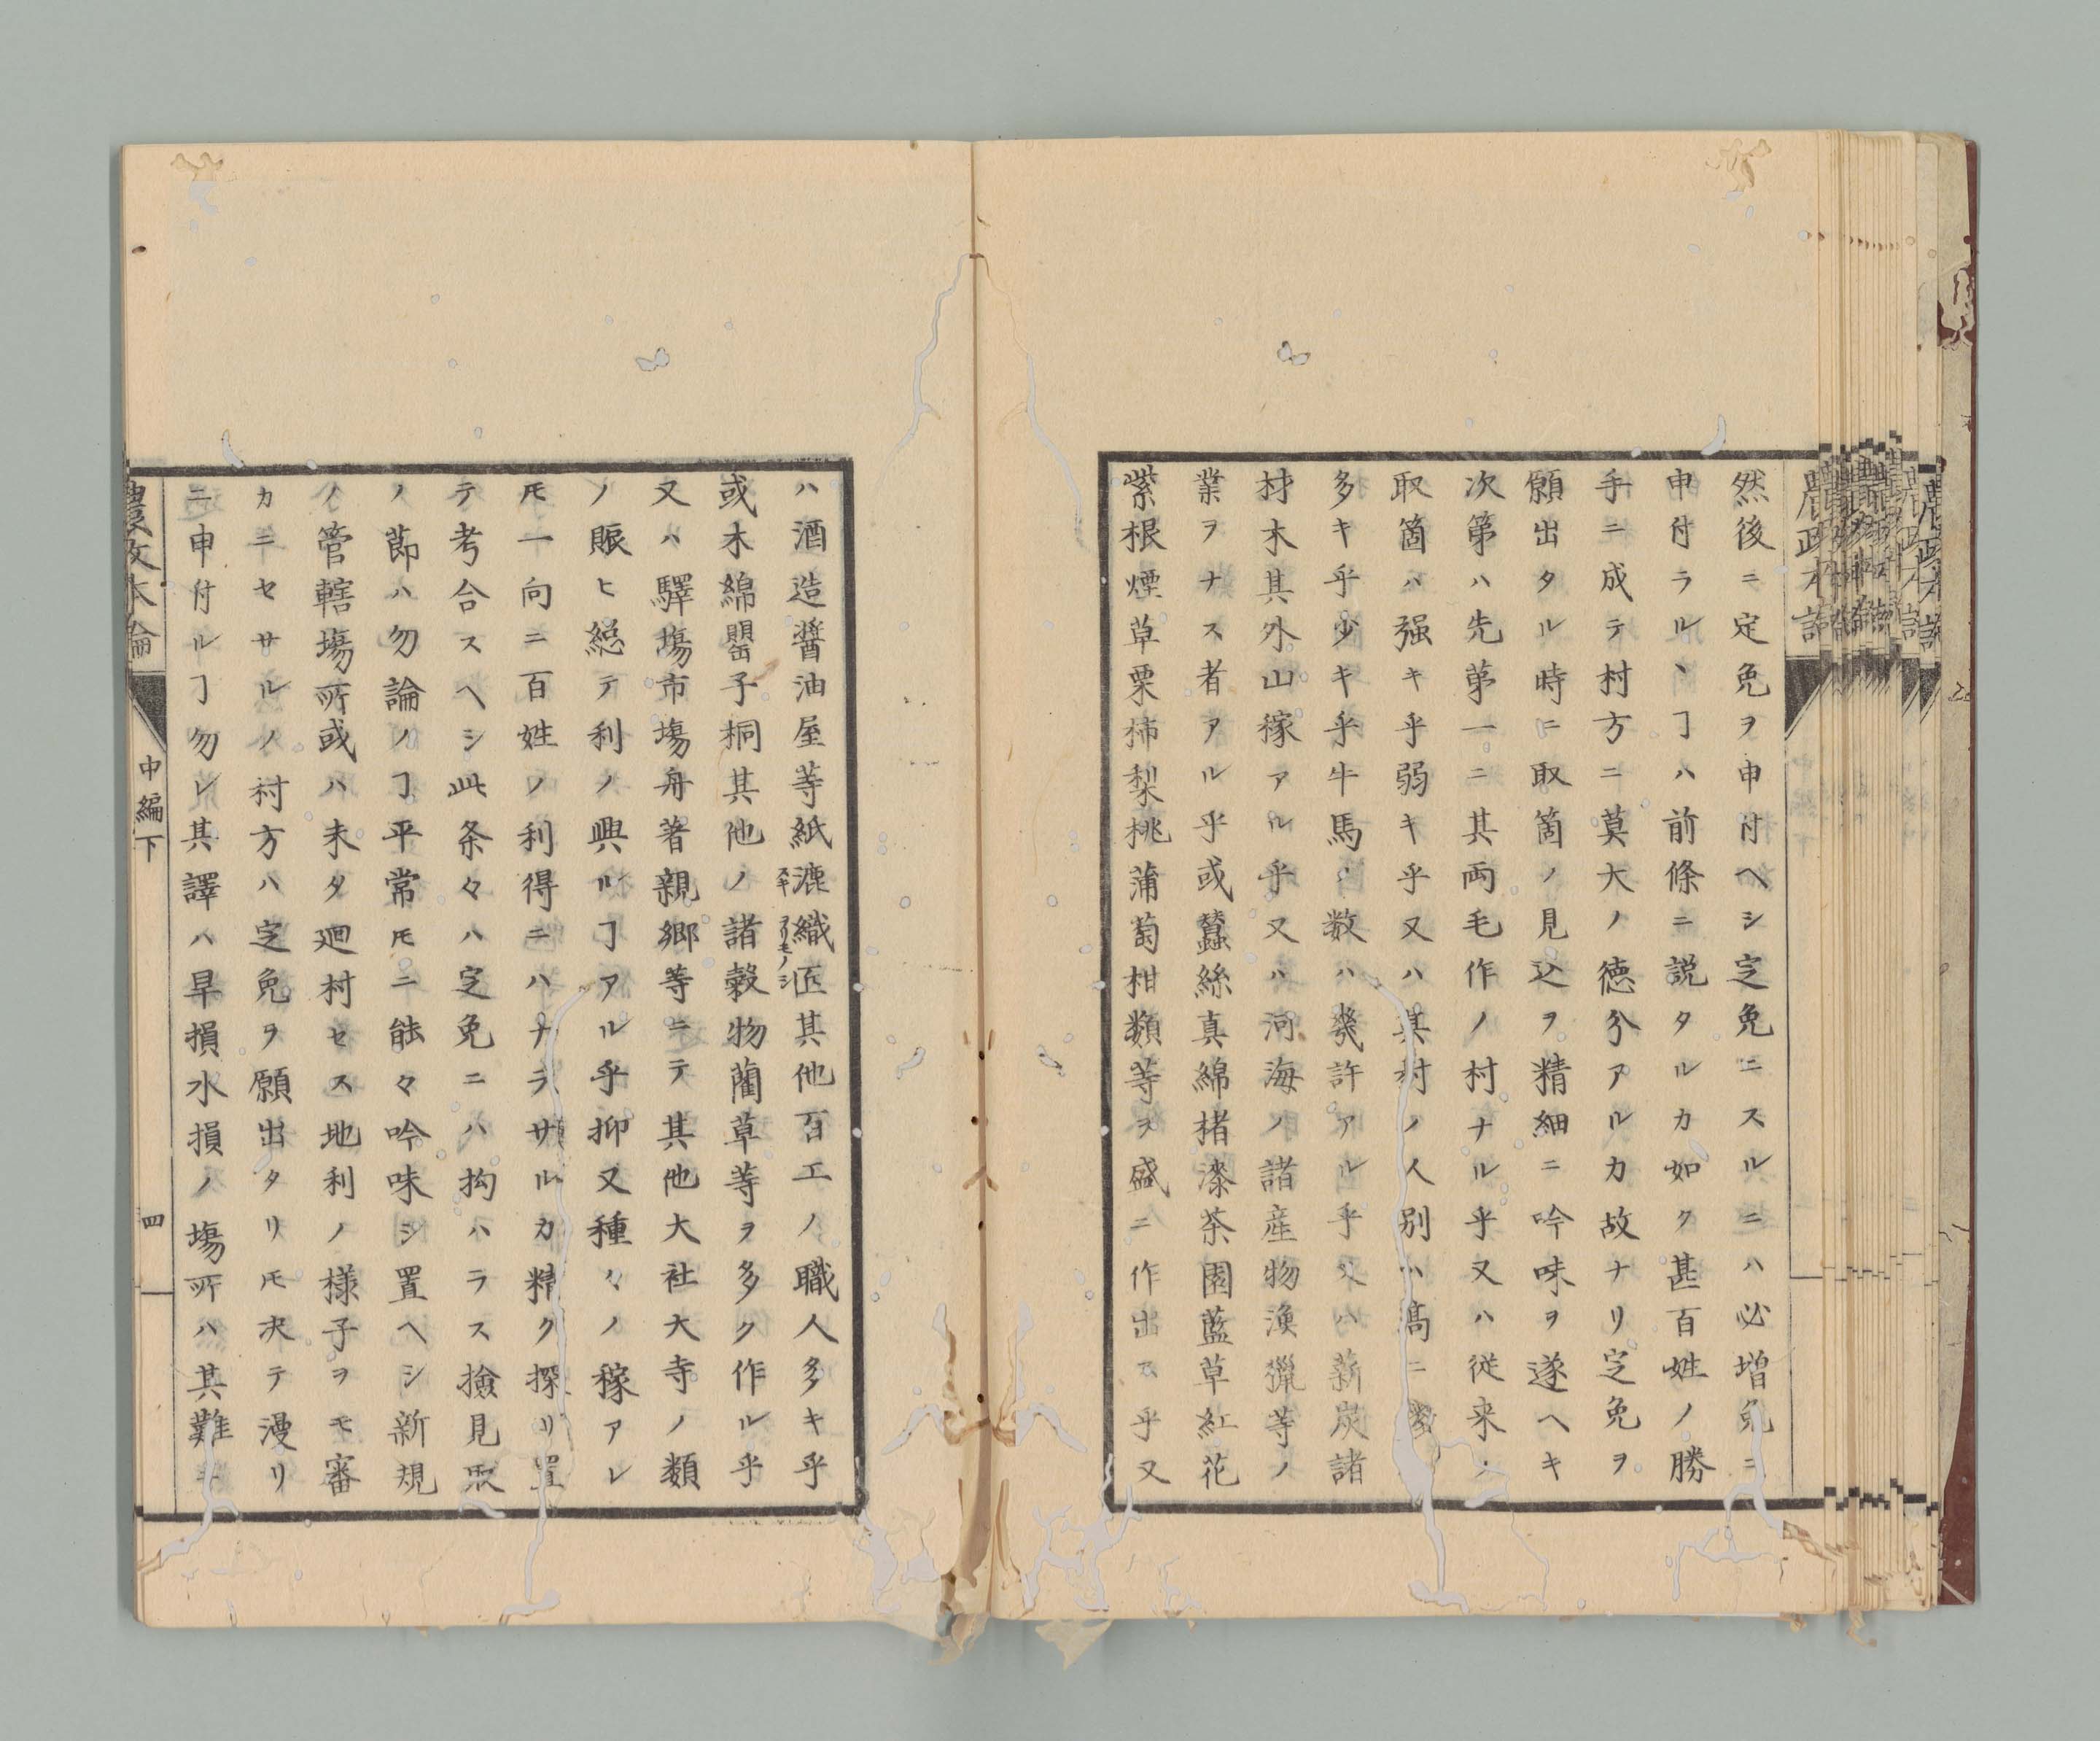 然後ニ定免ヲ申付ヘシ定免ニスルニハ必増免ニ
申付ラルヽヿハ前條ニ説タルカ如ク甚百姓ノ勝
手ニ成テ村方ニ莫大ノ徳分アルカ故ナリ定免ヲ
願出タル時ニ取箇ノ見込ヲ精細ニ吟味ヲ遂ヘキ
次第ハ先第一ニ其両毛作ノ村ナル乎又ハ従来ノ
取箇ハ強キ乎弱キ乎又ハ其村ノ人別ハ高ニ
多キ乎少キ乎牛馬ノ数ハ幾許アル乎又ハ薪炭諸
材木其外山稼アル乎又ハ河海ノ諸産物漁猟等ノ
業ヲナス者アル乎或蠶絲真綿楮漆茶園藍草紅花
紫根煙草栗柿梨桃蒲萄柑類等ヲ盛ニ作出ス乎又
ハ酒造醤油屋等紙漉スキ織ヲリモノシ匠其他百工ノ職人多キ乎
或木綿罌子桐其他ノ諸穀物藺草等ヲ多ク作ル乎
又ハ驛塲市塲舟著親郷等ニテ其他大社大寺ノ類
ノ賑ヒ総テ利ノ興ルヿアル乎抑又種々ノ稼アレ
𪜈一向ニ百姓ノ利得ニハナラサルカ精ク探リ置
テ考合スヘシ此条々ハ定免ニハ拘ハラス撿見取
ノ節ハ勿論ノヿ平常𪜈ニ能々吟味シ置ヘシ新規
ノ管轄塲所或ハ未タ廻村セス地利ノ様子ヲモ審
カニセサルノ村方ハ定免ヲ願出タリ𪜈决テ漫リ
ニ申付ルヿ勿レ其譯ハ旱損水損ノ塲所ハ其難キ
農政本論
中編下
四